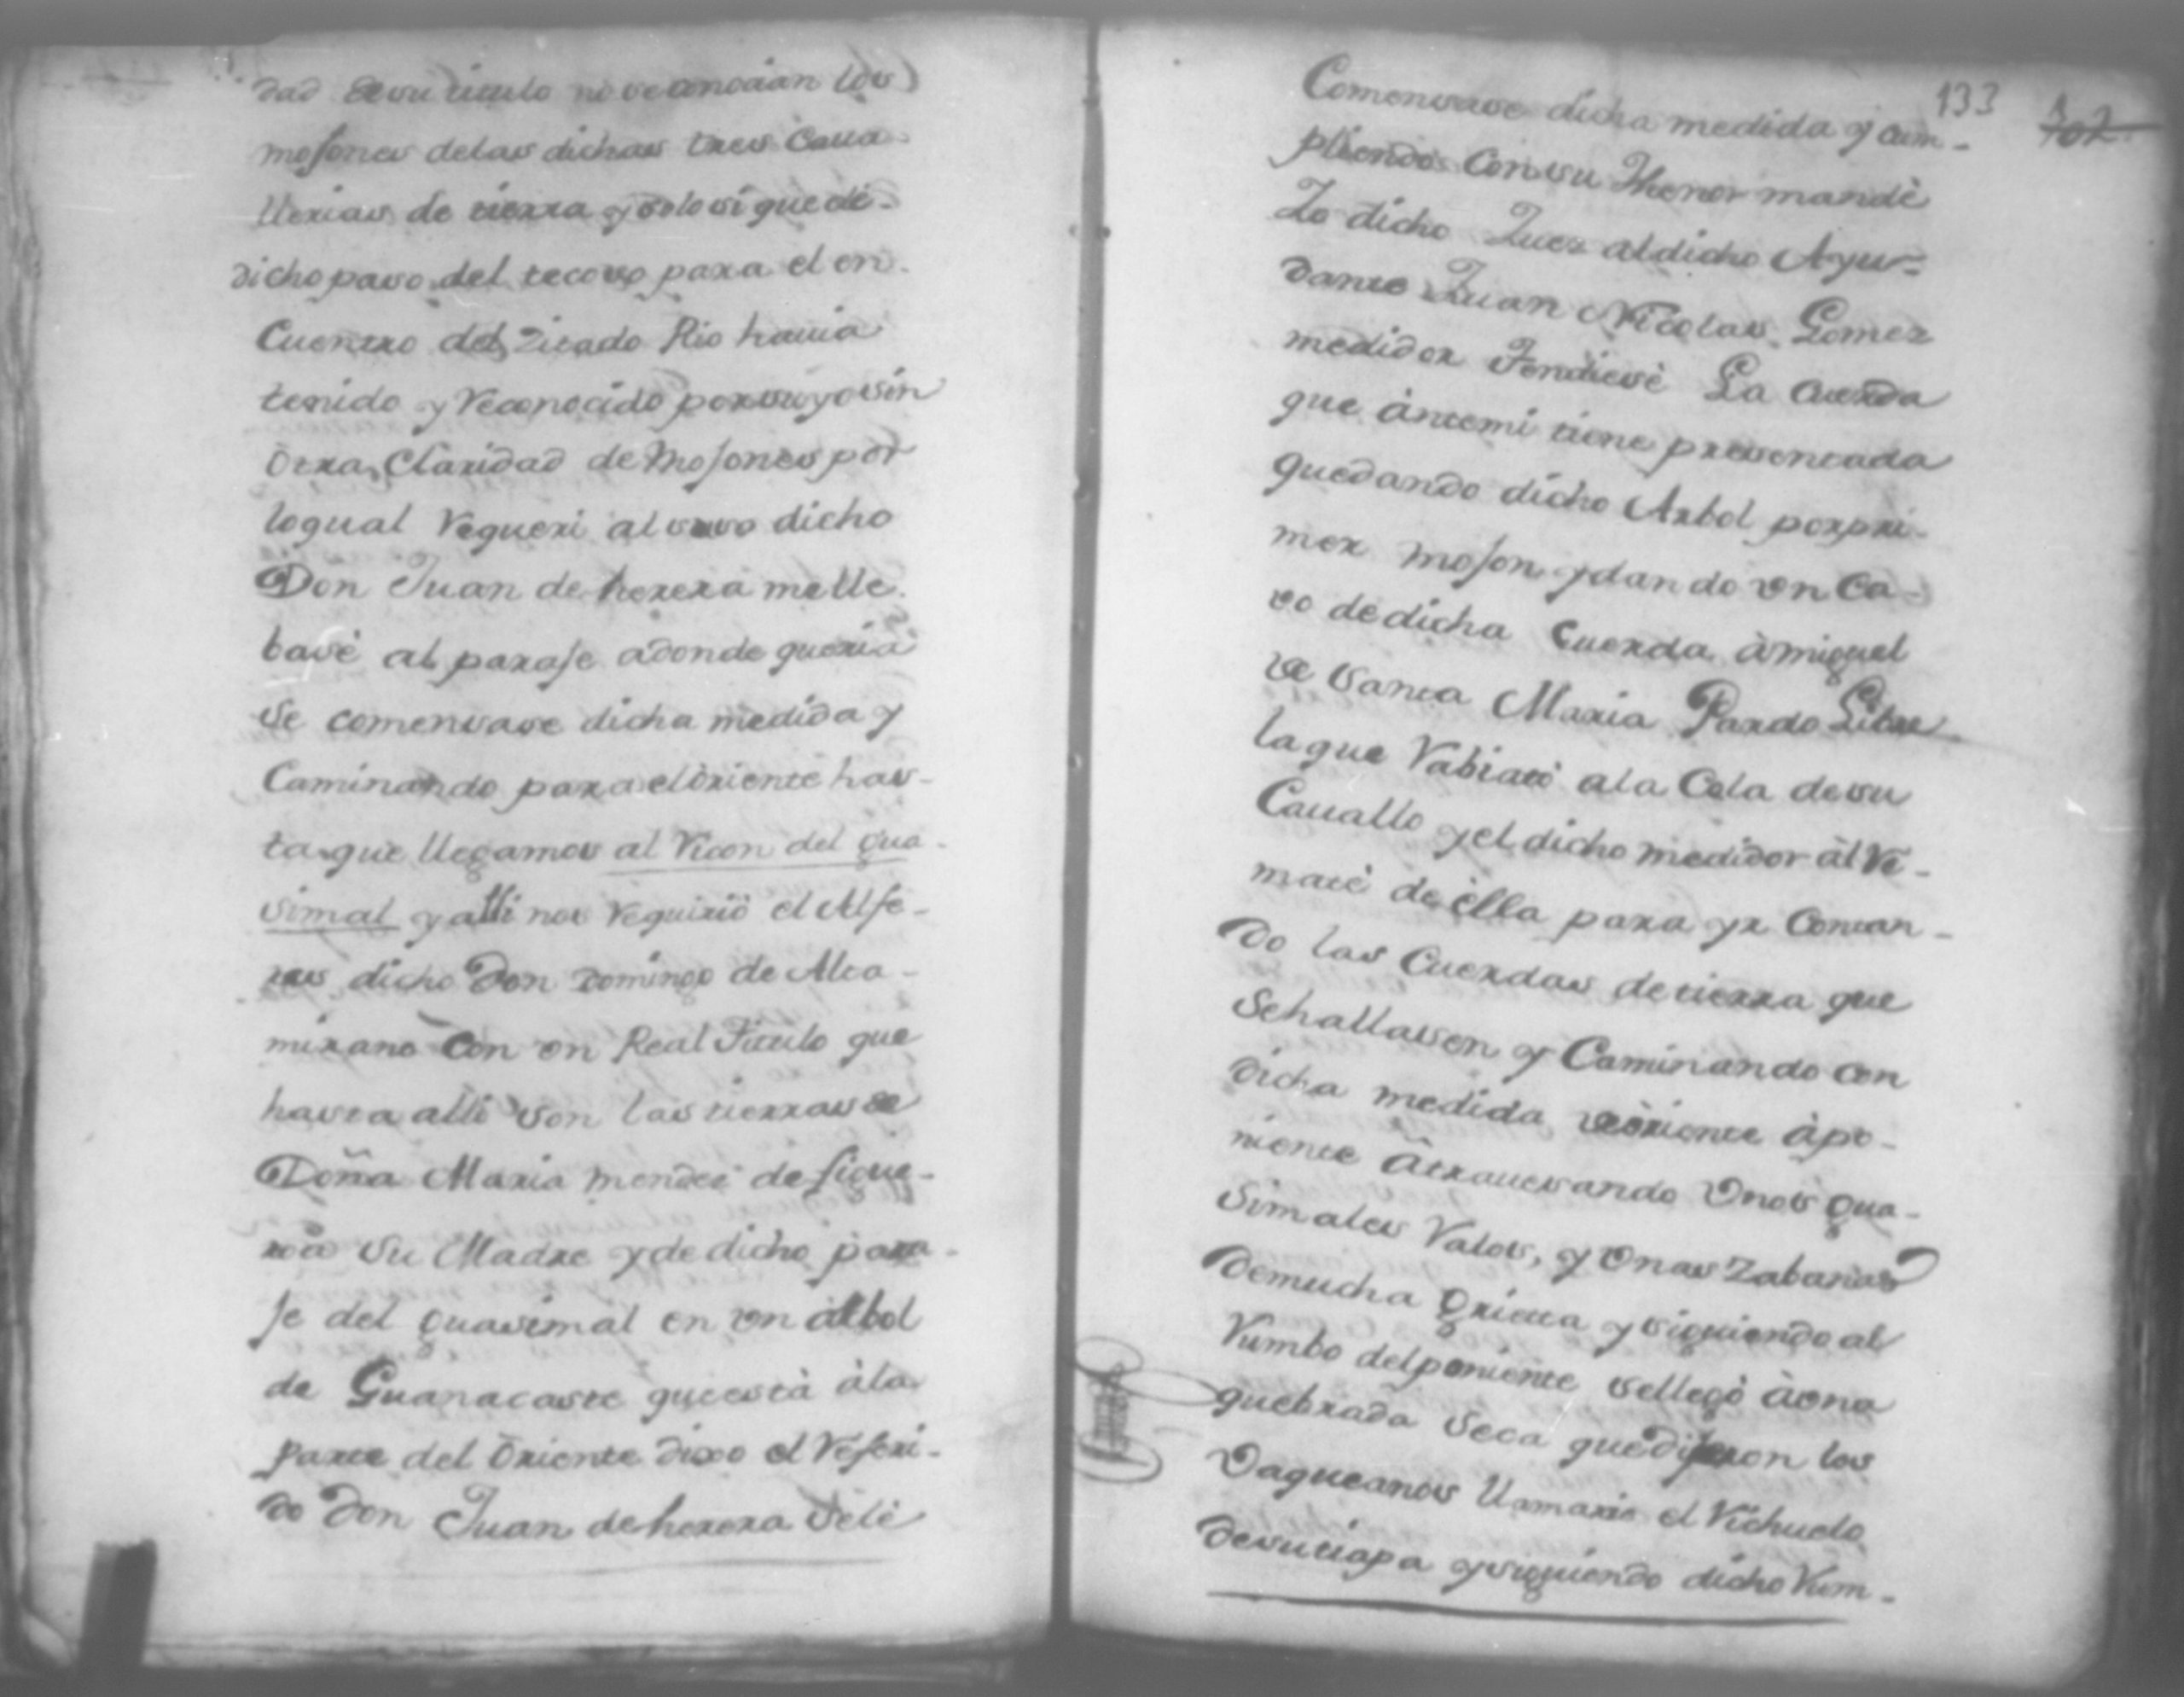 dad de su titulo no se conocian los
mojones delas dichas tres Caua-
llerias de tierra y solo si que de
dicho paso del tecoso para el en-
Cuentro del Zitado Rio hauia
tenido y Reconocido por suyo sin
Otra Claridad de Mojones por
loqual Requeri al suso dicho
Don Juan de herera melle-
base al paraje adonde queria
se comensase dicha medida y
Caminando para el òriente has-
ta que llegamos al Ricon del gua-
simal y alli nos Requirió el Alfe-
res dicho Don Domingo de Alta-
mirano Con un Real Titulo que
hasta alli son las tierras de
Doña Maria mendes de figue-
roa su Madre y de dicho para-
je del guasimal en vn alrbol
de Guanacaste que està àla
parte del Oriente dixo el Referi-
do Don Juan de herera sele
133 102
Comensase dicha medida y cum-
pliendo Con su Thenor mandè
Yo dicho Juez al dicho Ayu-
dante Juan Nicolas Gomez
medidor Tendiese La Cuerda
que àntemi tiene presentada
quedando dicho Arbol por pri-
mer mojon y dando vn Ca-
vo de dicha Cuerda à miguel
de santa Maria Pardo Libre
laque Rabiatò ala Cola de su
Cauallo y el dicho medidor àl Re-
mate de èlla para yr Contan-
do las Cuerdas de tierra que
se hallasen y Caminando con
dicha medida de òriente àpo-
niente Atrauesando Vnos gua-
simales Ralos, y Vnas Zabanas
de mucha grieta y siguiendo al
Rumbo del poniente sellegò àvna
quebrada seca que dijeron los
Vaqueanos llamarse el Richuelo
de sutiapa y siguiendo dicho Rum-